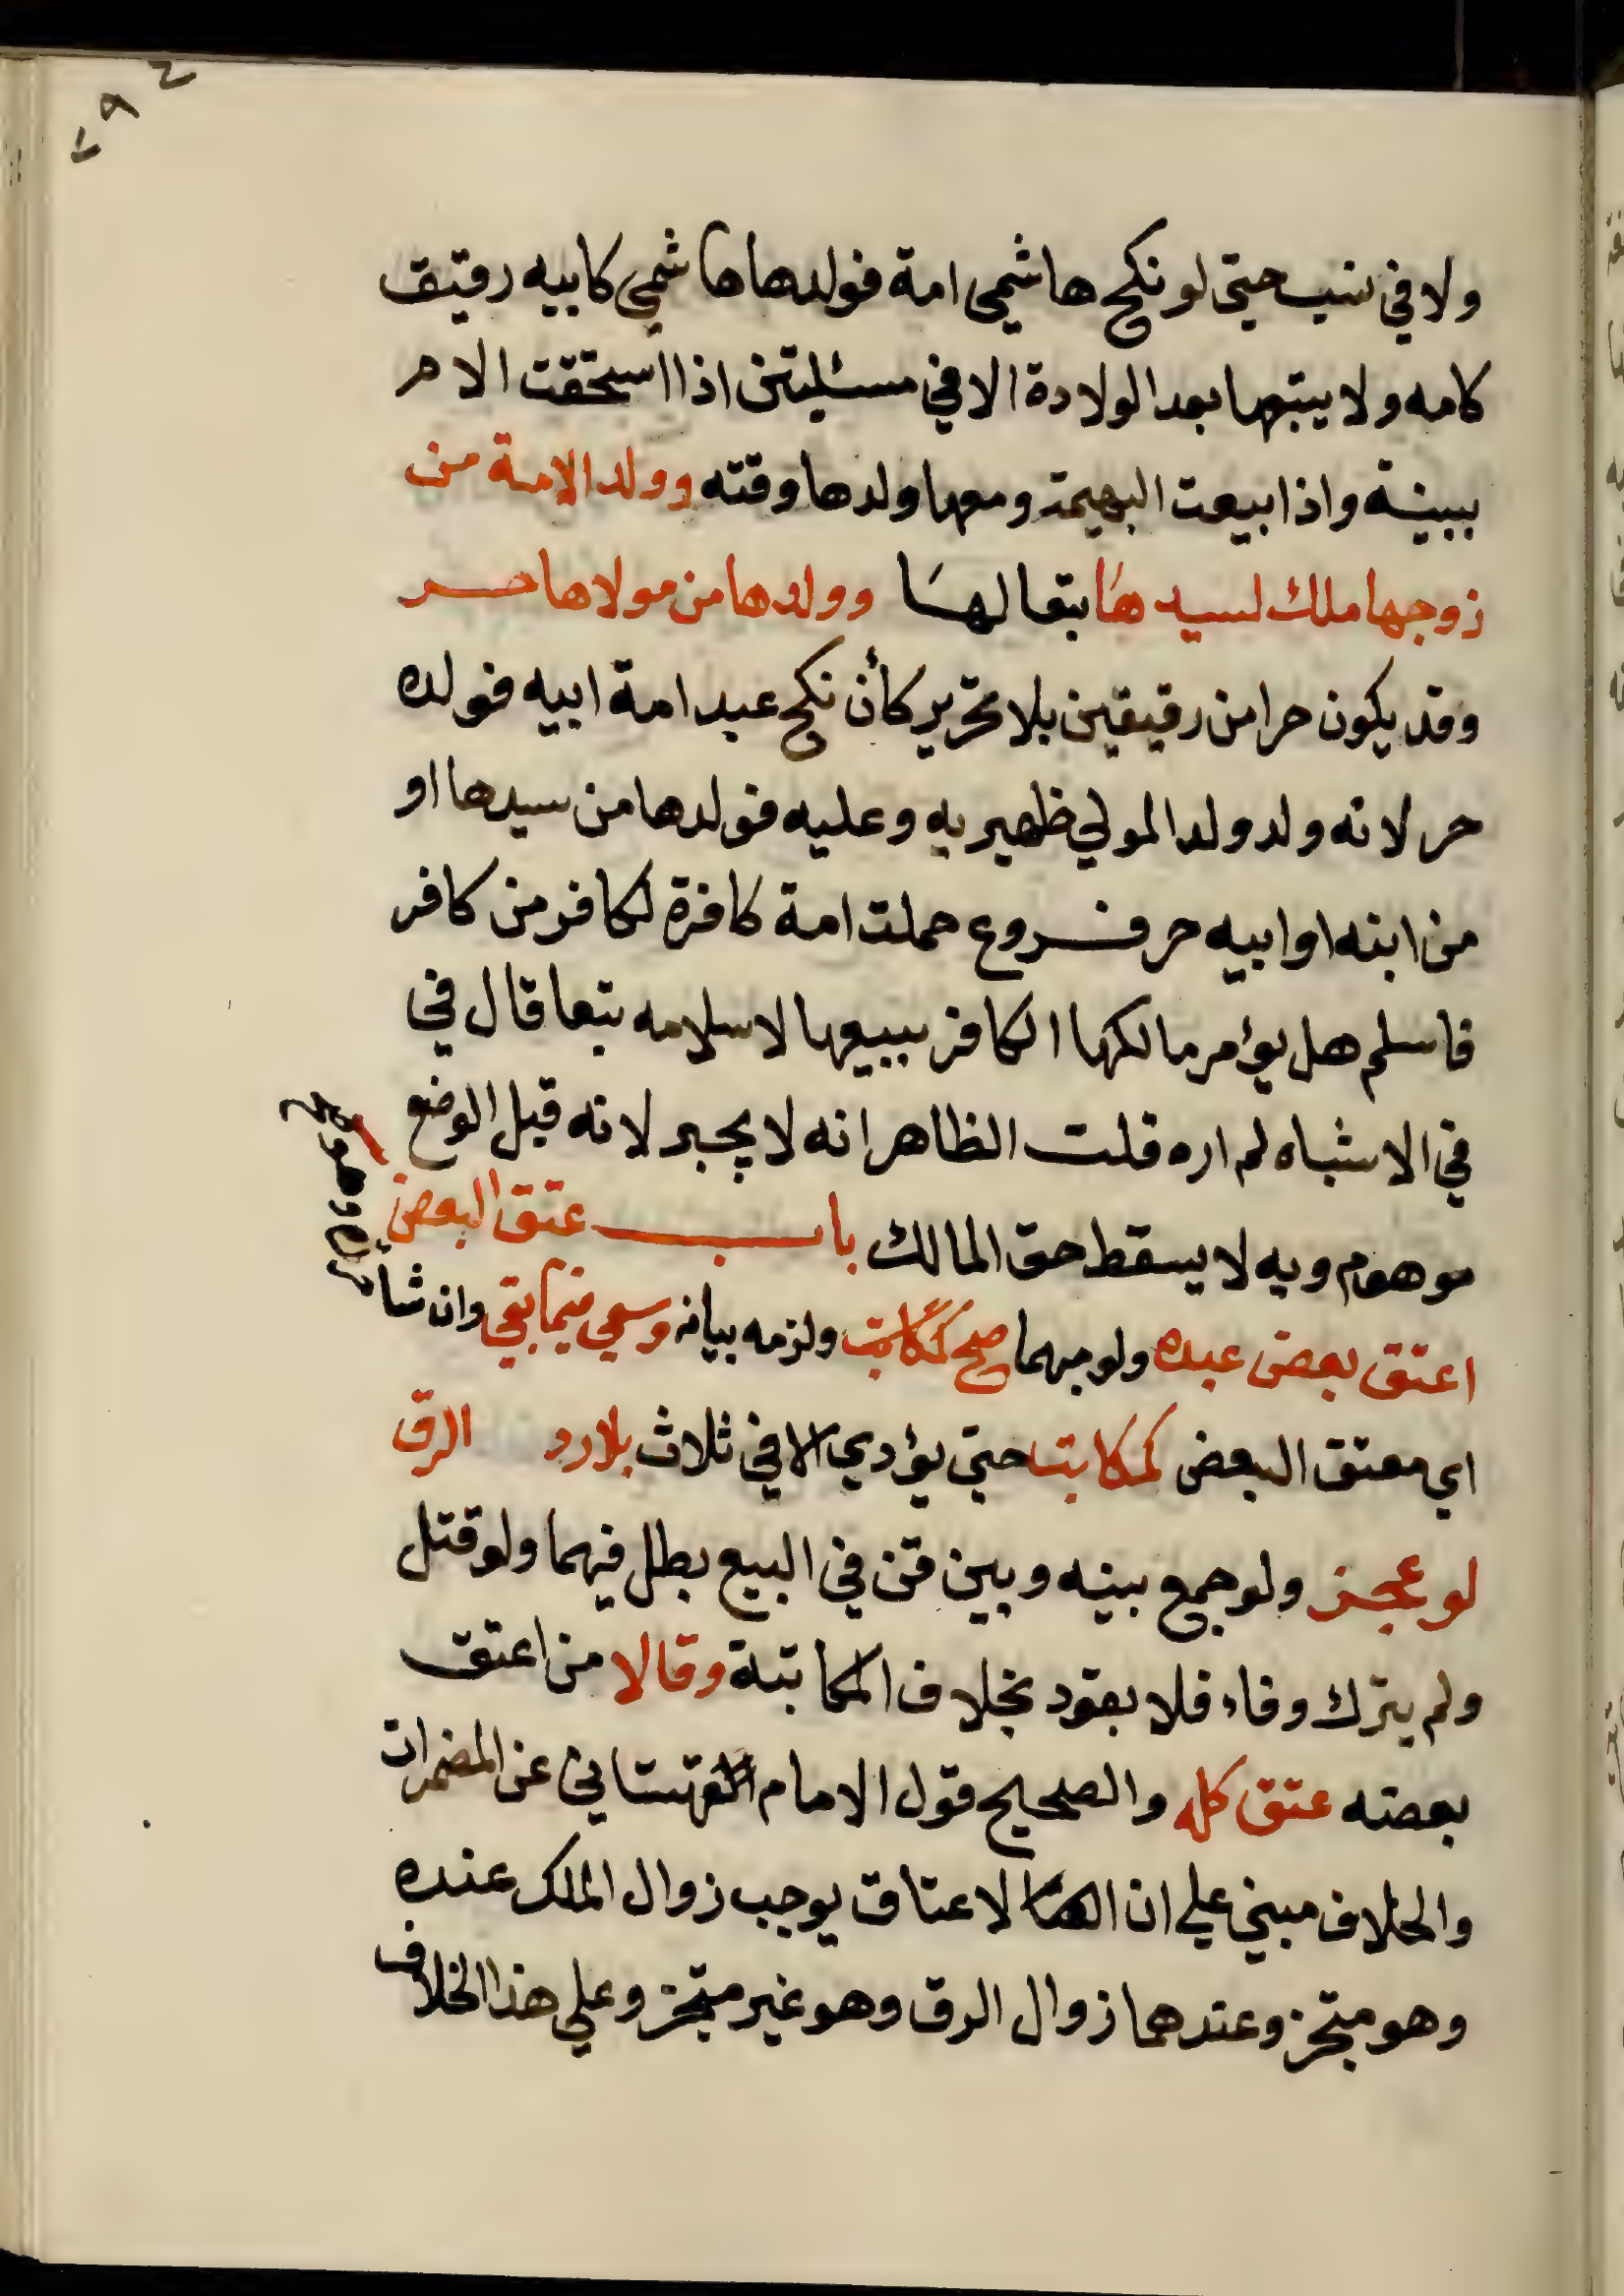 ولا في نسب حتى لو نكح هاشمي امة فولدها هاشمي كابيه رقيق
كامه ولا يتبعها بعد الولادة الا في مسئلتين اذا استحقت الام
ببينة واذا بيعت البهيمة ومعها ولدها وقته وولد الامة من
زوجها ملك لسيدها تبعا لها وولدها من مولاها حر
وقد يكون حرا من رقيقين بلا تحرير كأن نكح عبد امة ابيه فولده
حر لانه ولد ولد المولي ظهيريه وعليه فولدها من سيدها او
من ابنه او ابيه حر فروع حملت امة كافرة لكافر من كافر
فاسلم هل يؤمر مالكها الكافر ببيعها لاسلامه تبعا قال في
في الاشباه لم اره قلت الظاهر انه لا يجبر لانه قبل الوضع
موهوم وبه لا يسقط حق المالك باب عتق البعض
اعتق بعض عبده ولو مبهما صح ولزمه بيانه وسعي فيما بقي وان شأ
اي معتق البعض كمكاتب حتى يؤدي الا في ثلاث بلا رد الرق
لو عجز ولو جمع بينه وبين قن في البيع بطل فيهما ولو قتل
ولم يترك وفاء فلا يقود بخلاف المكاتبة وقالا من اعتق
بعضه عتق كله والصحيح قول الامام القهستاني عن المضمرات
والخلاف مبني علي ان الاعتاق يوجب زوال الملك عنده
وهو متجز وعندهما زوال الرق وهو غير متجز وعلي هذا الخلاف